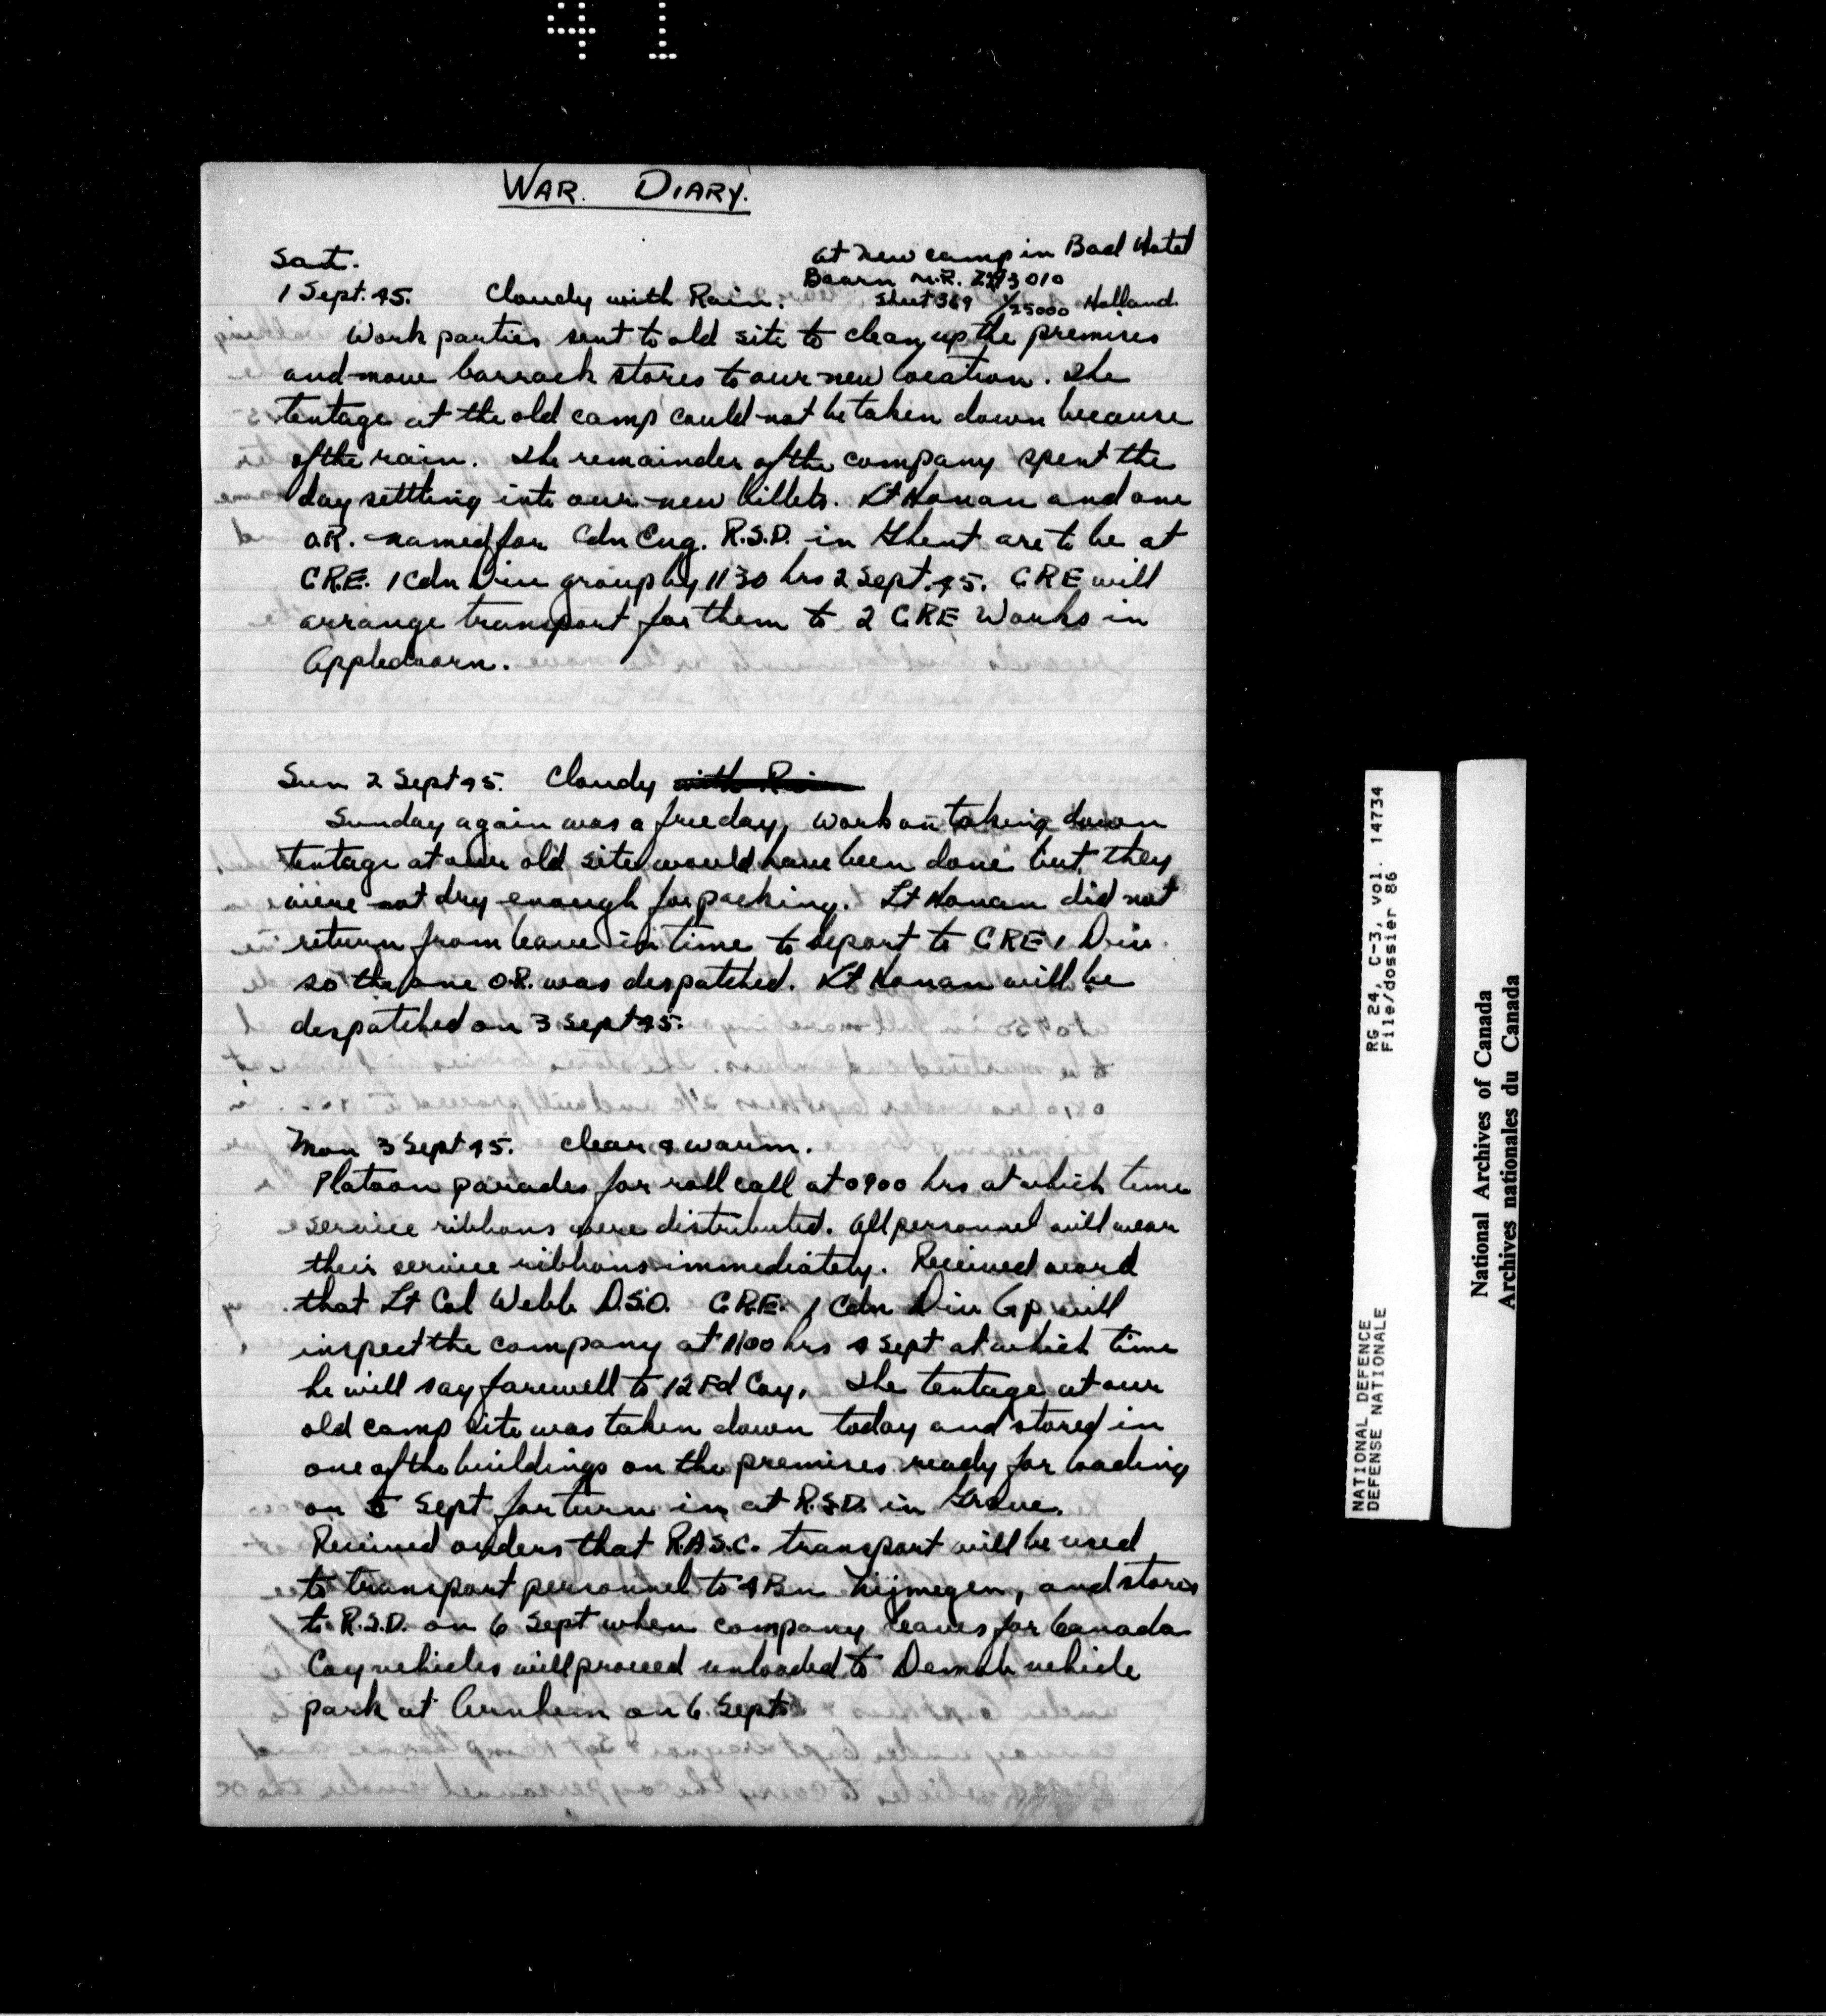 41
WAR. DIARY.
Sat. at new camp in Bad Hotel
Baarn M.R. 2493010
1 Sept. 45. Cloudy with Rain. Sheet 369 1/25000 Holland.
Work parties sent to old site to clean up the premises
and move barrack stores to our new location. The
tentage at the old camp could not be taken down because
of the rain. The remainder of the company spent the
day settling into our new billets. Lt Honan and one
O.R. named for Cdn Eng. R.S.D. in Ghent are to be at
C.R.E. 1 Cdn Div group by 1130 hrs 2 Sept. 45. CRE will
arrange transport for them to 2 CRE Works in
Appledoorn.
Sun 2 Sept 45. Cloudy with Rain
Sunday again was a free day, work on taking down
tentage at our old site would have been done but they
were not dry enough for packing. Lt Honan did not
return from leave in time to report to CRE 1 Div.
so the one O.R. was despatched. Lt Honan will be
despatched on 3 Sept 45.
Mon 3 Sept 45. Clear & warm.
Platoon parades for roll call at 0900 hrs at which time
service ribbons were distributed. All personnel will wear
their service ribbons immediately. Received word
that Lt Col Webb D.S.O. C.R.E. 1 Cdn Div Gp will
inspect the company at 1100 hrs 4 Sept at which time
he will say farewell to 12 Fd Coy. The tentage at our
old camp site was taken down today and stored in
one of the buildings on the premises ready for loading
on 5 Sept for turn in at R.S.D. in Grave.
Received orders that R.A.S.C. transport will be used
to transport personnel to 4 Bn Nijmegen, and stores
to R.S.D. on 6 Sept when company leaves for Canada
Coy vehicles will proceed unloaded to Demob vehicle
park at Arnhem on 6. Sept.
RG 24, C-3, vol. 14734
File/dossier 86
NATIONAL DEFENCE
DEFENSE NATIONALE
National Archives of Canada
Archives nationales du Canada